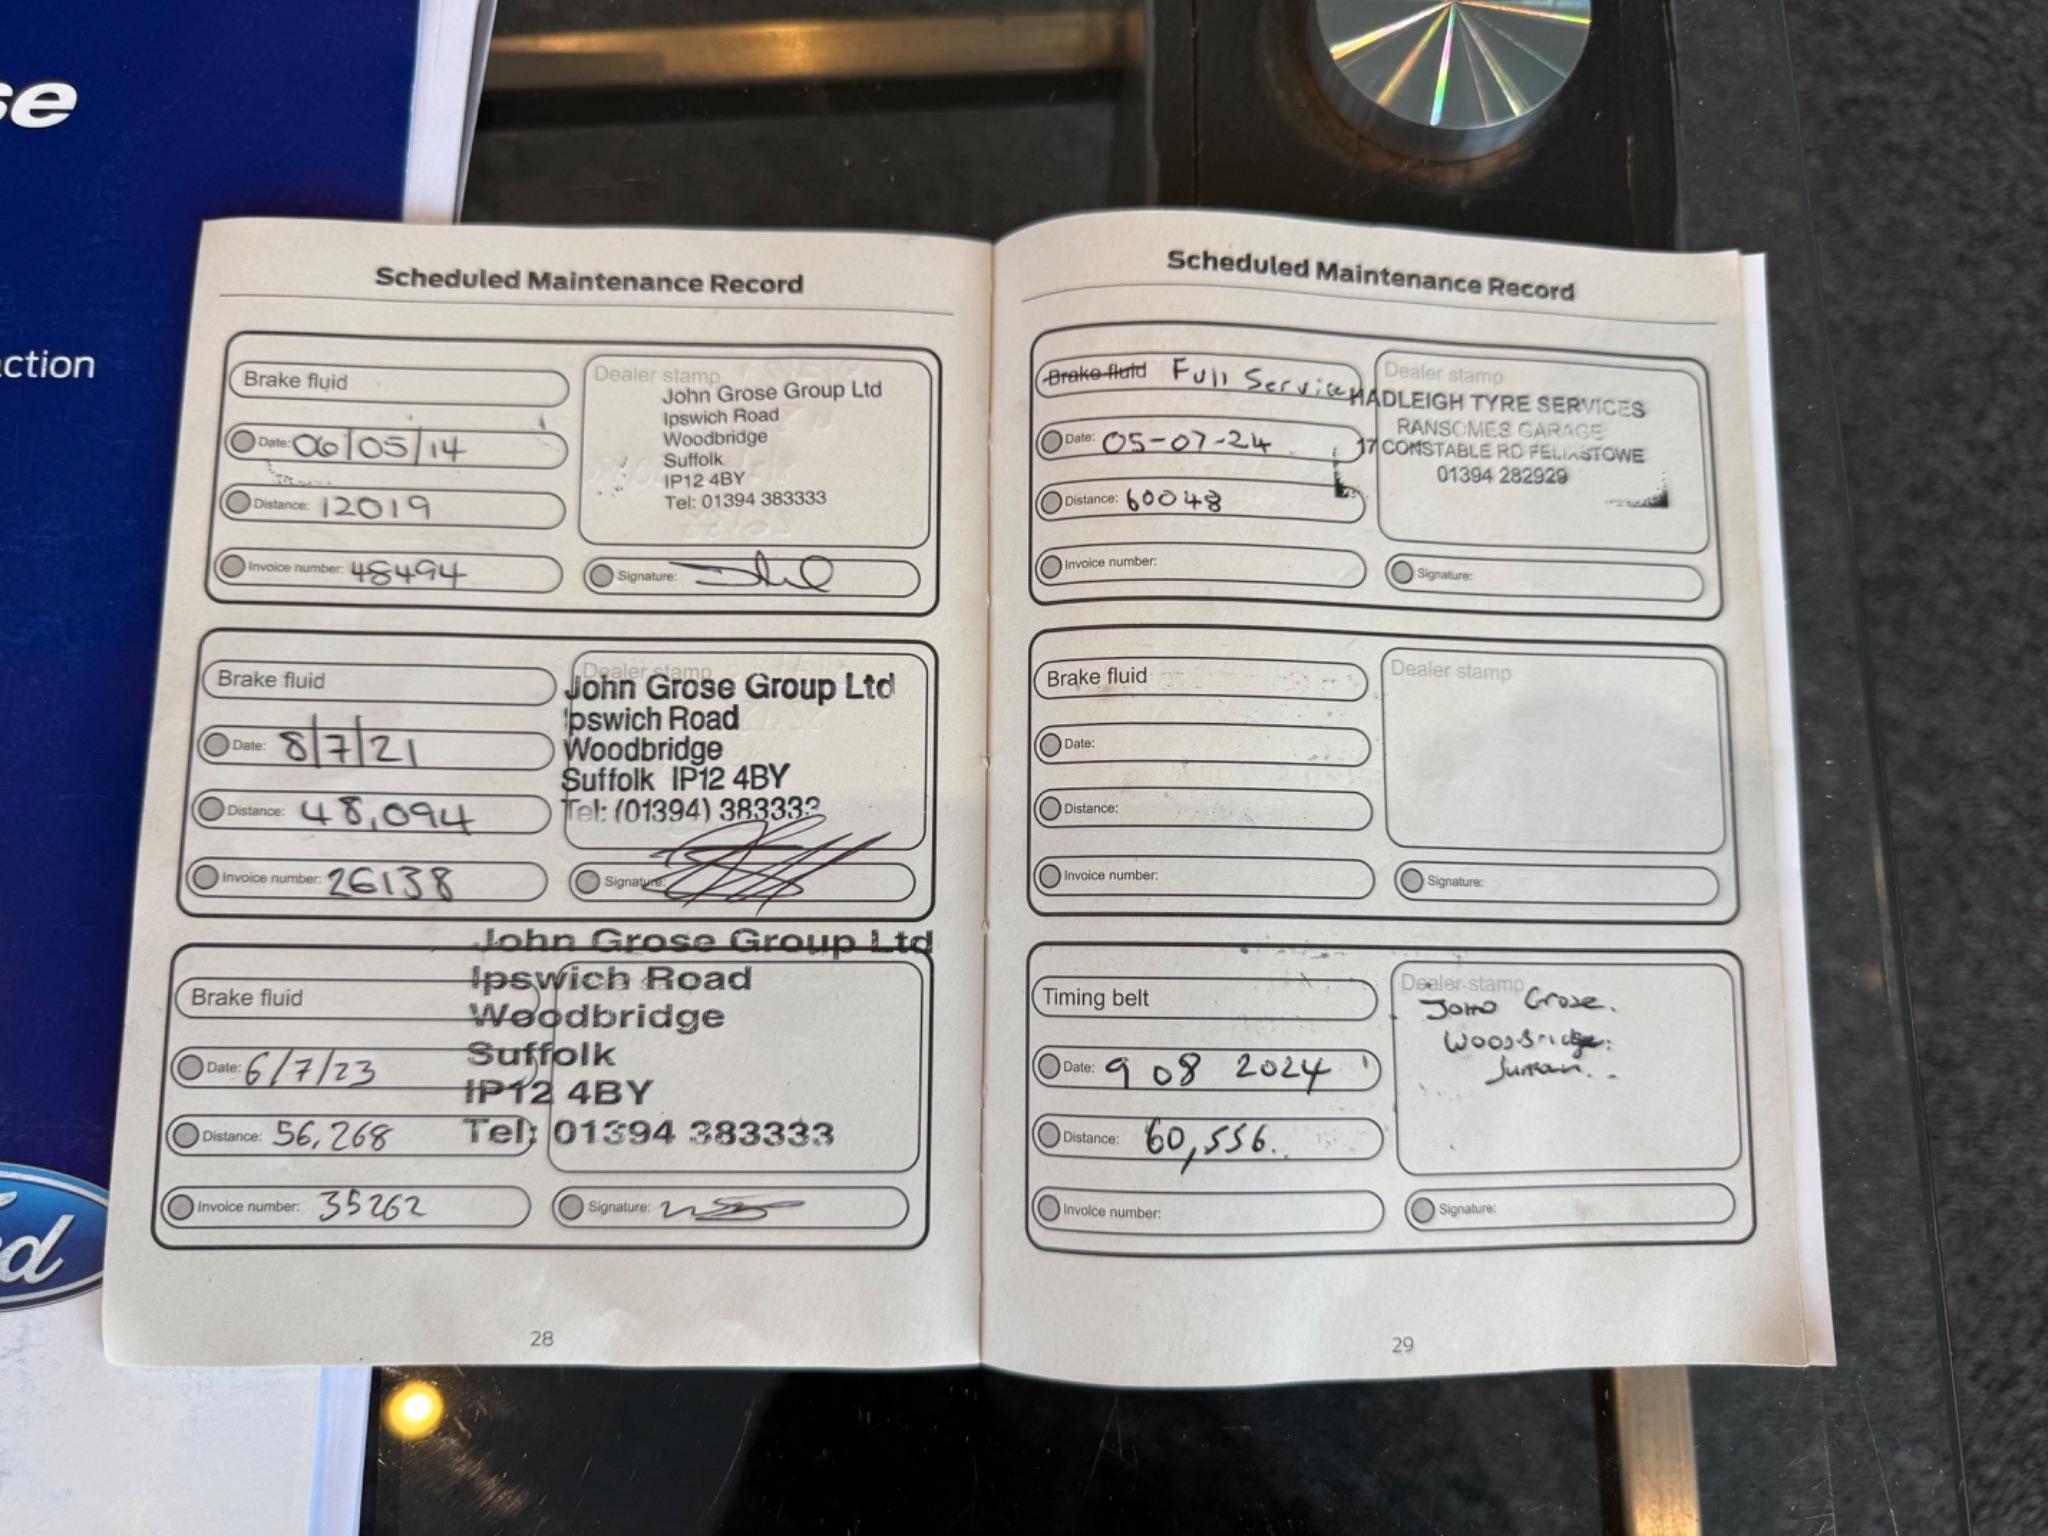 se
ction
Scheduled Maintenance Record
Brake fluid
Date: 06/05/14
Distance: 12019
Invoice number: 48494
Dealer stamp
John Grose Group Ltd
Ipswich Road
Woodbridge
Suffolk
IP12 4BY
Tel: 01394 383333
Signature:
Brake fluid
Date: 8/7/21
Distance: 48,094
Invoice number: 26138
Dealer stamp
John Grose Group Ltd
Ipswich Road
Woodbridge
Suffolk IP12 4BY
Tel: (01394) 383333
Signature:
Brake fluid
Date: 6/7/23
Distance: 56,268
Invoice number: 35262
John Grose Group Ltd
Ipswich Road
Woodbridge
Suffolk
IP12 4BY
Tel: 01394 383333
Signature:
28
Scheduled Maintenance Record
Brake fluid Full Service
Date: 05-07-24
Distance: 60048
Invoice number:
Dealer stamp
HADLEIGH TYRE SERVICES
RANSOMES GARAGE
17 CONSTABLE RD FELIXSTOWE
01394 282929
Signature:
Brake fluid
Date:
Distance:
Invoice number:
Dealer stamp
Signature:
Timing belt
Date: 9 08 2024
Distance: 60,556.
Invoice number:
Dealer stamp
John Grose.
Woodbridge.
Signature:
29